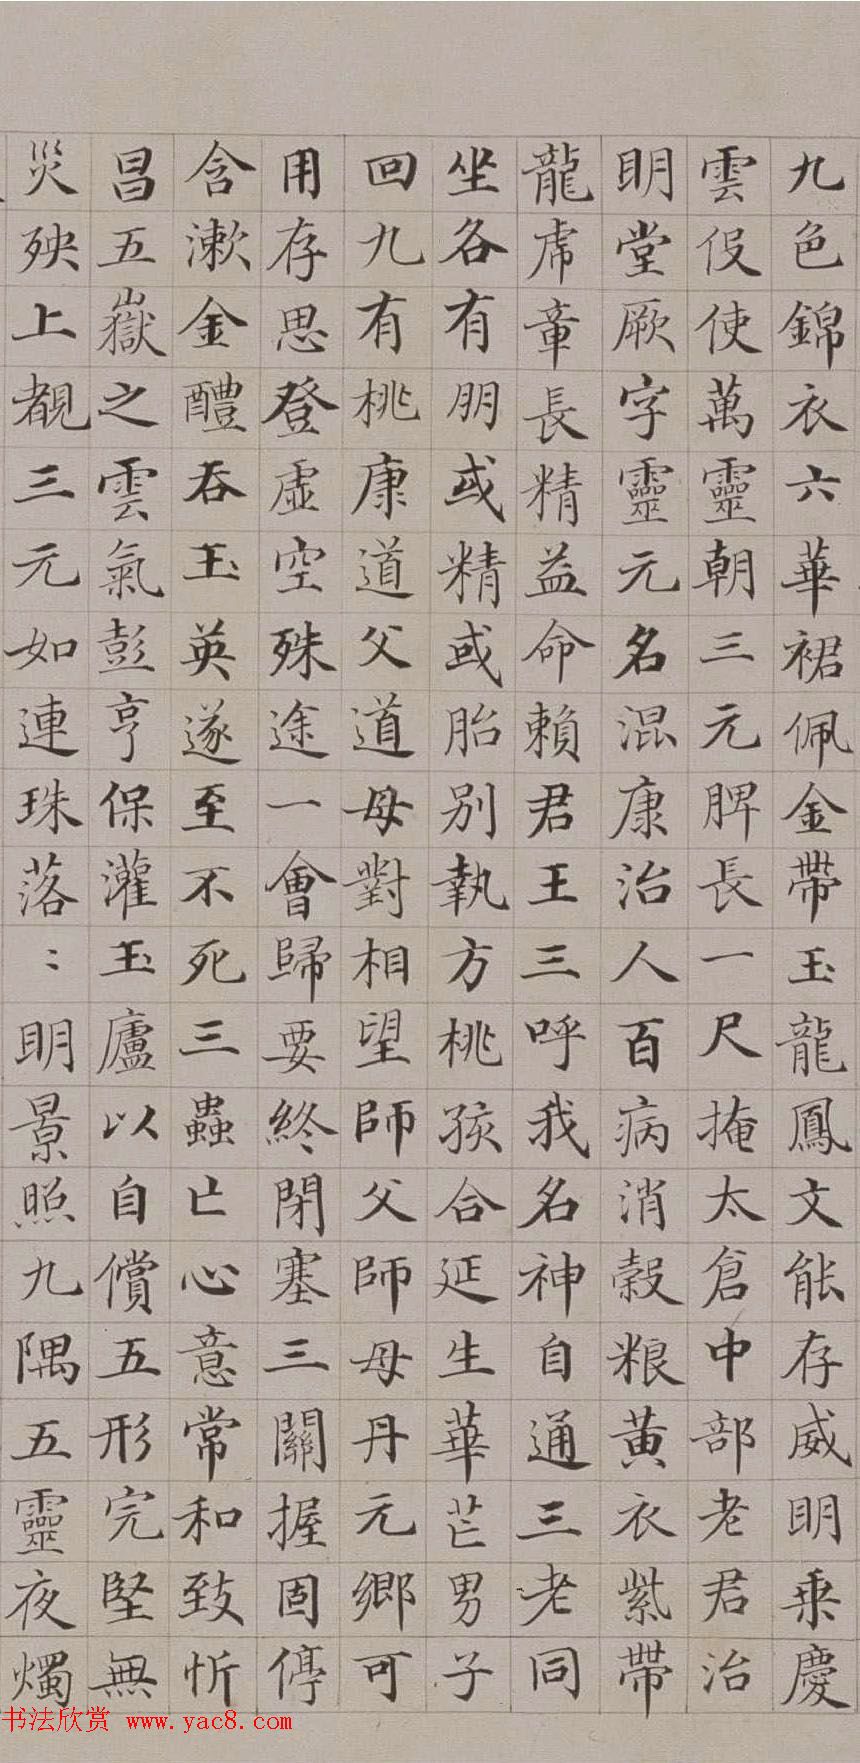 九色錦衣六華裙佩金帶玉龍鳳文能存威明乘慶
雲伇使萬靈朝三元脾長一尺掩太倉中部老君治
明堂厥字靈元名混康治人百病消穀粮黄衣紫帶
龍虎章長精益命賴君王三呼我名神自通三老同
坐各有朋或精或胎別執方桃孩合延生華芒男子
回九有桃康道父道母對相望師父師母丹元鄉可
用存思登虛空殊途一會歸要終閉塞三關握固停
含漱金醴吞玉英遂至不死三蟲亡心意常和致忻
昌五嶽之雲氣彭亨保灌玉廬以自償五形完堅無
災殃上覩三元如連珠落：明景照九隅五靈夜燭
书法欣赏 www.yac8.com